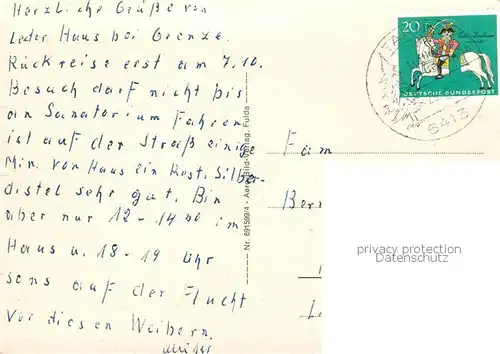 Herzliche Grüße von
Leder Haus bei Grenze.
Rückreise erst am 7.10.
Besuch darf nicht bis
an Sanatorium Fahren
ist auf der Straß einige
Min. von Haus ein Rest. Silber-
distel sehr gut. Bin
aber nur 12 - 14 00 im
Haus u. 18 - 19 Uhr
sons auf der Flucht
vor diesen Weibern.
Nr. 691599/4 - Aero-Bild-Verlag, Fulda
Fam
Ber
20
DEUTSCHE BUNDESPOST
6413
privacy protection
Datenschutz